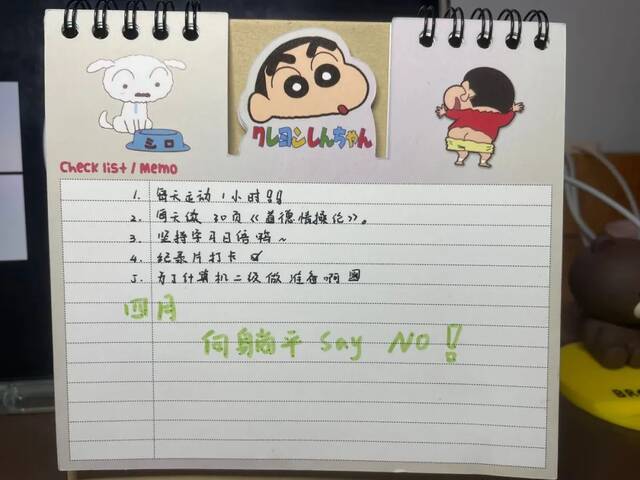 シロ
クレヨンしんちゃん
Check list / Memo
1. 每天运动1小时!!
2. 每天做30页《道德情操论》。
3. 坚持学习日语哈~
4. 纪录片打卡
5. 为了计算机二级做准备啊
四月
向躺平 Say NO!
BR